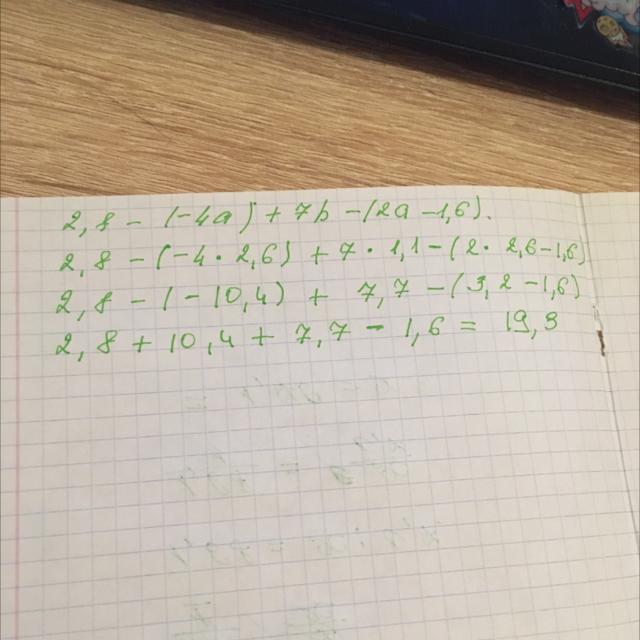 2,8 - (-4a) + 7b - (2a - 1,6).
2,8 - (-4 · 2,6) + 7 · 1,1 - (2 · 2,6 - 1,6)
2,8 - (-10,4) + 7,7 - (3,2 - 1,6)
2,8 + 10,4 + 7,7 - 1,6 = 19,3